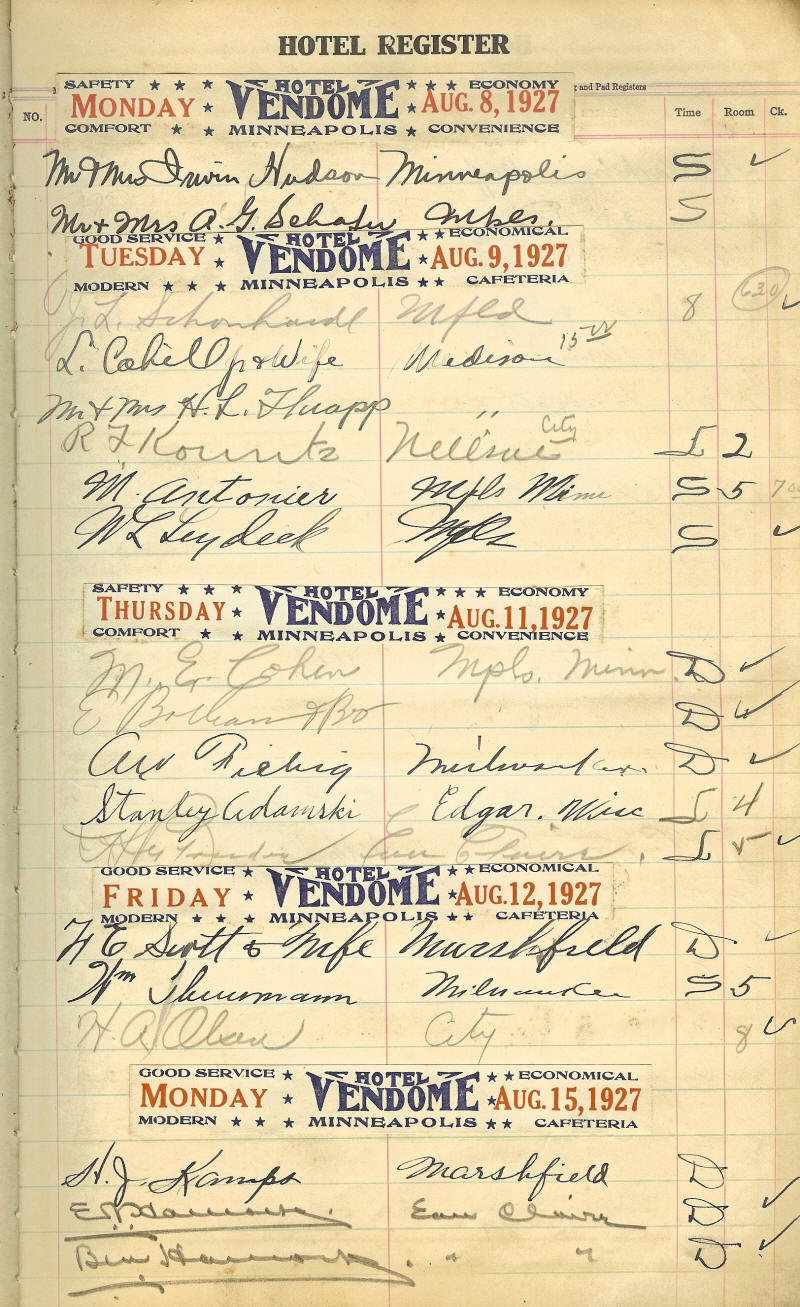 HOTEL REGISTER
and Pad Registers
NO. Time Room Ck.
SAFETY ECONOMY
HOTEL
MONDAY VENDOME AUG. 8, 1927
COMFORT MINNEAPOLIS CONVENIENCE
Mr & Mrs Irwin Hudson Minneapolis S ✓
Mr & Mrs A. G. Schafer Mpls. S
GOOD SERVICE ECONOMICAL
HOTEL
TUESDAY VENDOME AUG. 9, 1927
MODERN MINNEAPOLIS CAFETERIA
J. L. Schonhardt Mfld 8 630 ✓
L. Cahill Jr & Wife Madison 15 00
Mr & Mrs H. L. " 
R F Kountz City L 2
M. Antonier Mpls Minn S 5 7 00
W L Leydeck Mpls S ✓
SAFETY ECONOMY
HOTEL
THURSDAY VENDOME AUG. 11, 1927
COMFORT MINNEAPOLIS CONVENIENCE
M. E. Cohen Mpls. Minn. D ✓
E & Bro D 4
Fiebig Milwaukee. D ✓
Stanley Adamski Edgar. Wisc L 4
Eau Claire. L 5 ✓
GOOD SERVICE ECONOMICAL
HOTEL
FRIDAY VENDOME AUG. 12, 1927
MODERN MINNEAPOLIS CAFETERIA
E Scott & Wife Marshfield D ✓
Wm Thuermann Milwaukee S 5
H. A. Olsen City 8 ✓
GOOD SERVICE ECONOMICAL
HOTEL
MONDAY VENDOME AUG. 15, 1927
MODERN MINNEAPOLIS CAFETERIA
H. J. Kamps Marshfield D
Eau Claire D ✓
Ben " " D ✓